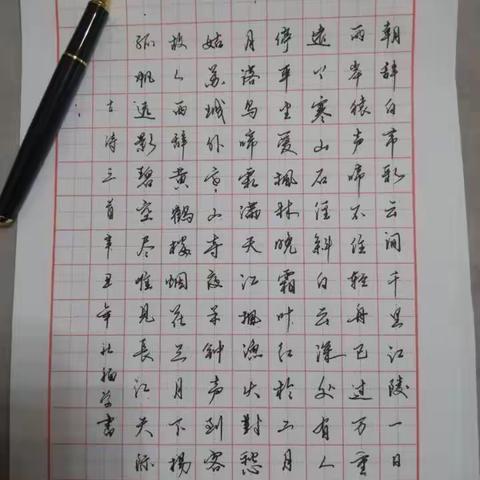 朝辞白帝彩云间千里江陵一日
两岸猿声啼不住轻舟已过万重
远上寒山石径斜白云深处有人
停车坐爱枫林晚霜叶红于二月
月落乌啼霜满天江枫渔火對愁
姑苏城外寒山寺夜半钟声到客
故人西辞黄鹤楼烟花三月下扬
孤帆远影碧空尽唯见長江天际
古诗三首辛丑年书